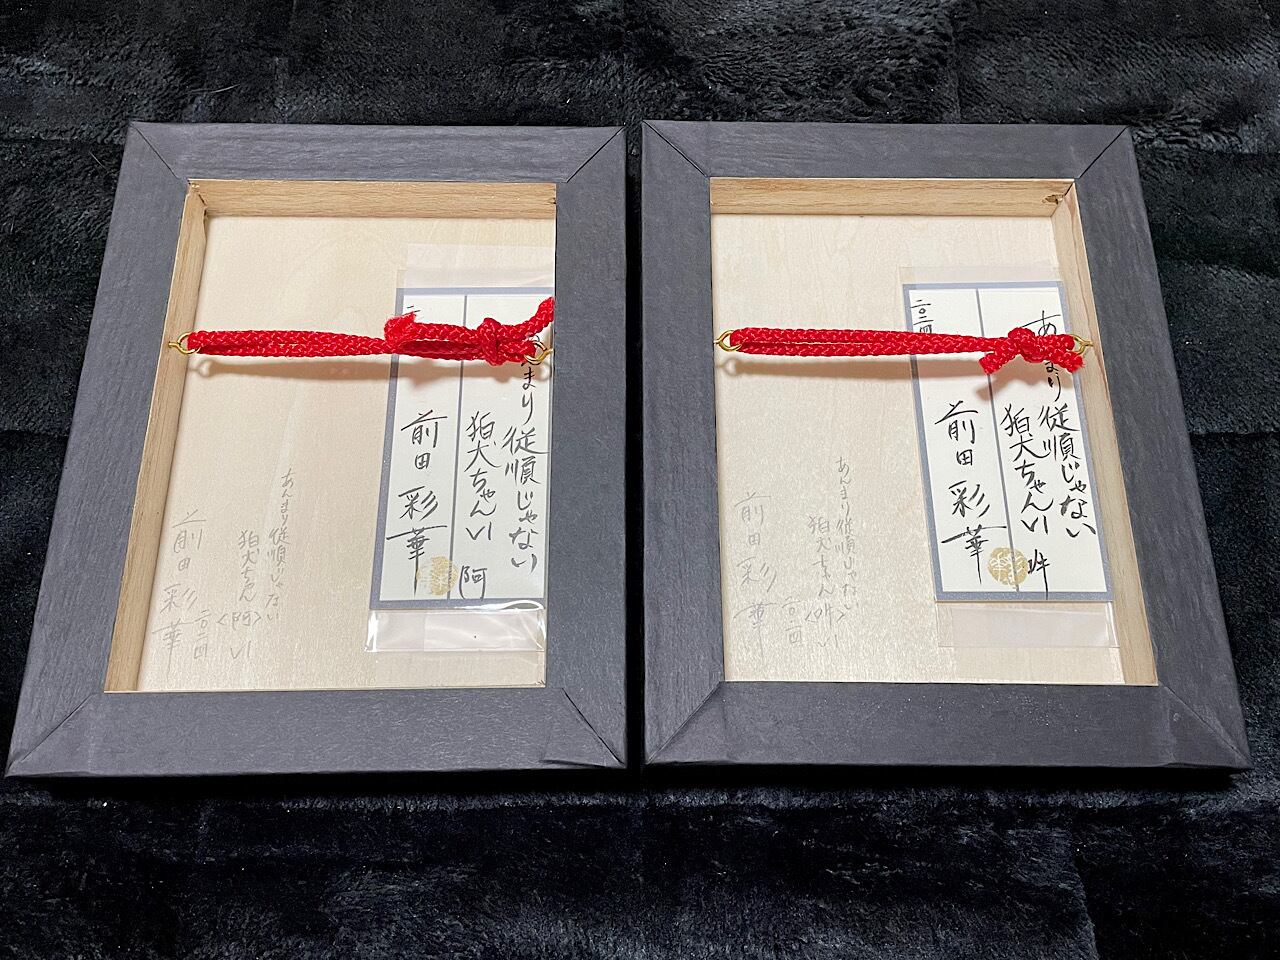 んまり従順じゃない
狛犬ちゃんⅥ 阿
前田彩華
あんまり従順じゃない
狛犬ちゃん〈阿〉Ⅵ
二〇二四
前田彩華
二〇二四
あ まり従順じゃない
狛犬ちゃんⅥ 吽
前田彩華
あんまり従順じゃない
狛犬ちゃん〈吽〉Ⅵ
二〇二四
前田彩華